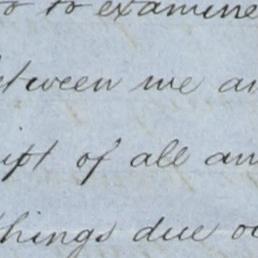 to examine
between me an
ipt of all an
things due o